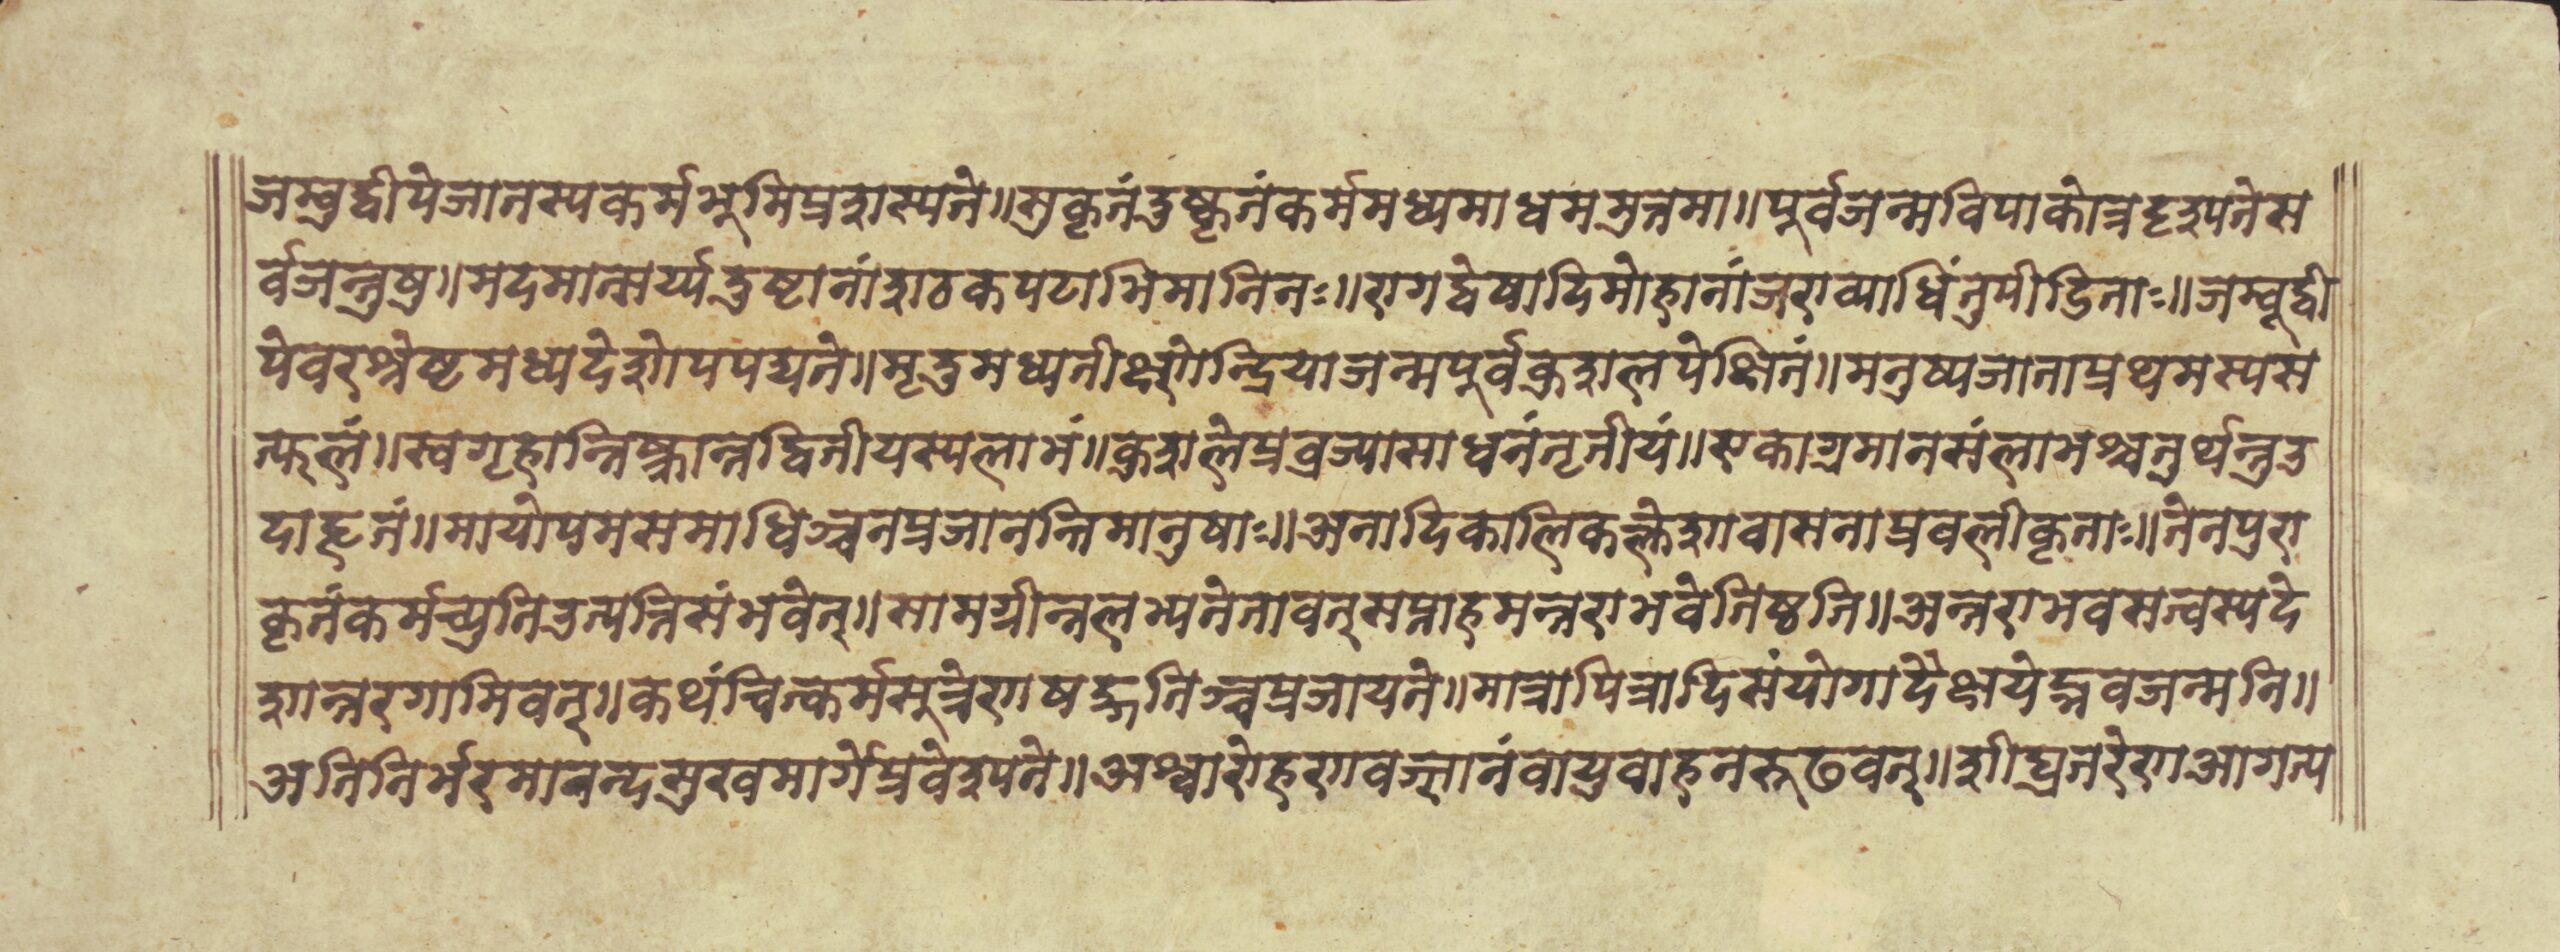 जम्बुद्वीपेजातस्यकर्मभूमिप्रशस्यते॥सुकृतंदुष्कृतंकर्ममध्यमाधममुत्तमा॥पूर्वजन्मविपाकोत्रदृश्यतेस
र्वजन्तुषु॥मदमात्सर्य्यदुष्टानांशठकपटाभिमानिनः॥रागद्वेषादिमोहानांजराव्याधिंनुपीडिताः॥जम्बूद्वी
पेवरश्रेष्टमध्यदेशोपपद्यते॥मृदुमध्यतीक्ष्णेन्द्रियाजन्मपूर्वकुशलपेक्षितं॥मनुष्यजाताप्रथमस्यस
त्फलं॥स्वगृहान्निष्क्रान्तद्वितीयस्यलाभं॥कुशलेप्रव्रज्यासाधनंतृतीयं॥एकाग्रमानसंलाभश्चतुर्थन्तुउ
दाहृतं॥मायोपमसमाधिञ्चनप्रजानन्तिमानुषाः॥अनादिकालिकक्लेशवासनाप्रवलीकृताः॥तेनपुरा
कृतंकर्मच्युतिउत्पत्तिसंभवेत्॥सामग्रीन्नलभ्यतेतावत्सप्ताहमन्तराभवेतिष्ठति॥अन्तराभवसत्त्वस्यदे
शान्तरगामिवत्॥कथंचित्कर्मसूत्रेणषड्गतिञ्चप्रजायते॥मात्रापित्रादिसंयोगादैक्षयेद्भवजन्मनि॥
अतिनिर्भरमानन्दसुखमार्गेप्रवेश्यते॥अश्वारोहणवज्ज्ञानंवायुवाहनरूढवत्॥शीघ्रतरेणआगत्य